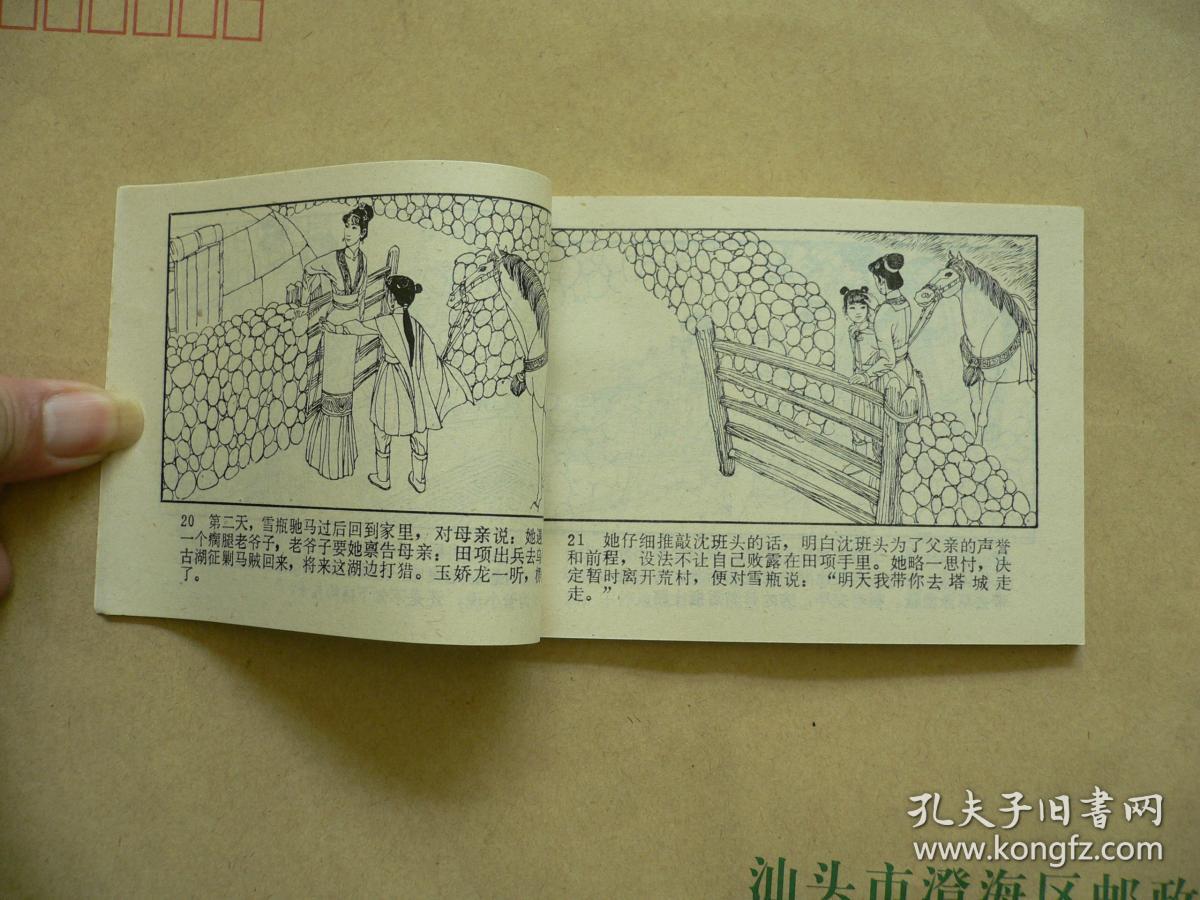 20 第二天，雪瓶驰马过后回到家里，对母亲说：她遇
一个瘸腿老爷子，老爷子要她禀告母亲：田项出兵去乌
古湖征剿马贼回来，将来这湖边打猎。玉娇龙一听，
了。
21 她仔细推敲沈班头的话，明白沈班头为了父亲的声誉
和前程，设法不让自己败露在田项手里。她略一思忖，决
定暂时离开荒村，便对雪瓶说：“明天我带你去塔城走
走。”
孔夫子旧书网
www.kongfz.com
汕头市澄海区邮政